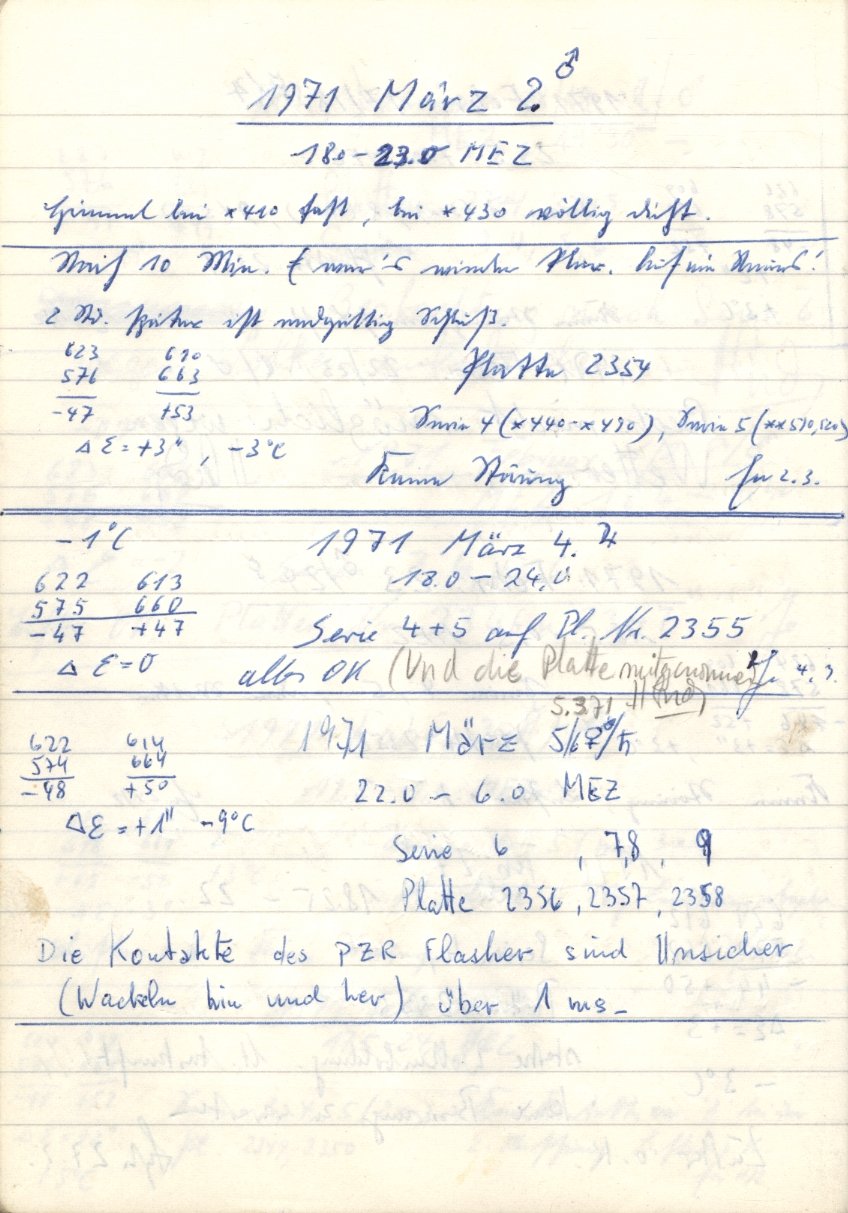 1971 März 2. ♂
18.0-23.0 MEZ
Himmel bei *410 fast, bei *430 völlig dicht.
Nach 10 Min. war's wieder klar. Auf ein Neues!
2 Std. später ist endgültig Schluß.
623 690
576 663
-47 +53
Platte 2354
Serie 4 (*440-*490), Serie 5 (**510,520)
Δ Ɛ = +3" , -3°C
Keine Störung 2.3.
-1°C 1971 März 4. ♃
622 613 18.0 - 24.0
575 660
-47 +47 Serie 4+5 auf Pl. Nr. 2355
Δ Ɛ = 0 alles OK (Und die Platte mitgenommen 4.3.
5.3.71
622 614 1971 März 5/6 ♀/♄
574 664
-48 +50 22.0 - 6.0 MEZ
Δ Ɛ = +1" -9°C
Serie 6 , 7,8 , 9
Platte 2356, 2357, 2358
Die Kontakte des PZR Flasher sind Unsicher
(Wackeln hin und her) über 1 ms-